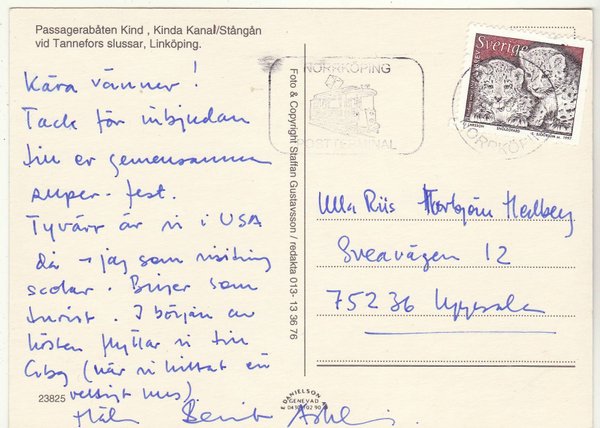 Passagerabåten Kind , Kinda Kanal/Stångån
vid Tannefors slussar, Linköping.
Kära vänner !
Tack för inbjudan
till er gemensamma
super-fest.
Tyvärr är vi i USA
då → jag som visiting
scolar. Birger som
turist. I början av
hösten flyttar vi till
Gbg (när vi hittat en
vettigt hus).
23825
Foto & Copyright Staffan Gustavsson / redakta 013- 13 36 76
DANIELSON
GENEVAD
NORRKÖPING
POSTTERMINAL
Sverige
NORRKÖPING
Ulla Riis Torbjörn Hedberg
Sveavägen 12
752 36 Uppsala